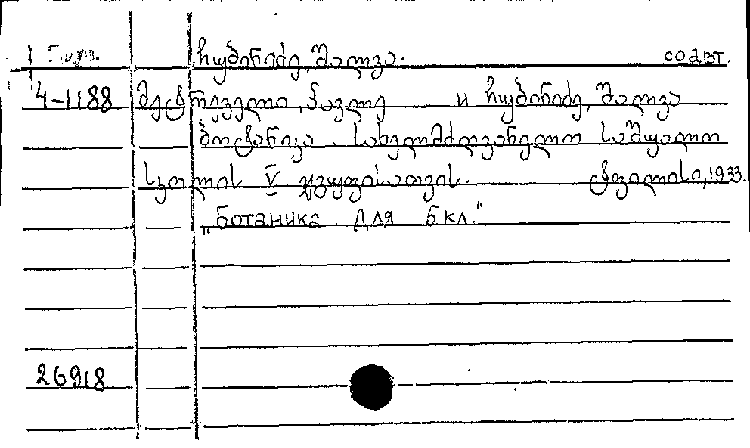 Груз. ჩუბინიძე, შალვა. соавт.
4-1188 მეტრეველი, პავლე и ჩუბინიძე, შალვა
ბოტანიკა. სახელმძღვანელო საშუალო
სკოლის V ჯგუფისათვის. ტფილისი, 1933.
„Ботаника для 5 кл."
26918